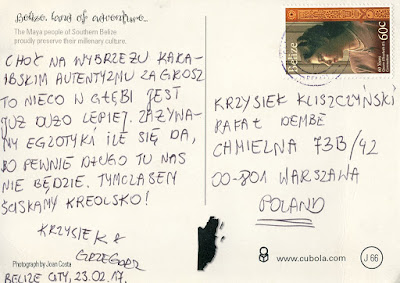 Belize, land of adventure
The Maya people of Southern Belize
proudly preserve their millenary culture.
CHOĆ NA WYBRZEŻU KARA-
IBSKIM AUTENTYZMU ZA GROSZ
TO NIECO W GŁĘBI JEST
JUŻ DUŻO LEPIEJ. ZAŻYWA-
MY EGZOTYKI ILE SIĘ DA,
BO PEWNIE DŁUGO TU NAS
NIE BĘDZIE. TYMCZASEM
ŚCISKAMY KREOLSKO!
KRZYSIEK &
GRZEGORZ
Photograph by Joan Costa
BELIZE CITY, 23.02.17.
Belize
60c
KRZYSIEK KLISZCZYŃSKI
RAFAŁ DEMBE
CHMIELNA 73B/42
00-801 WARSZAWA
POLAND
www.cubola.com
J 66